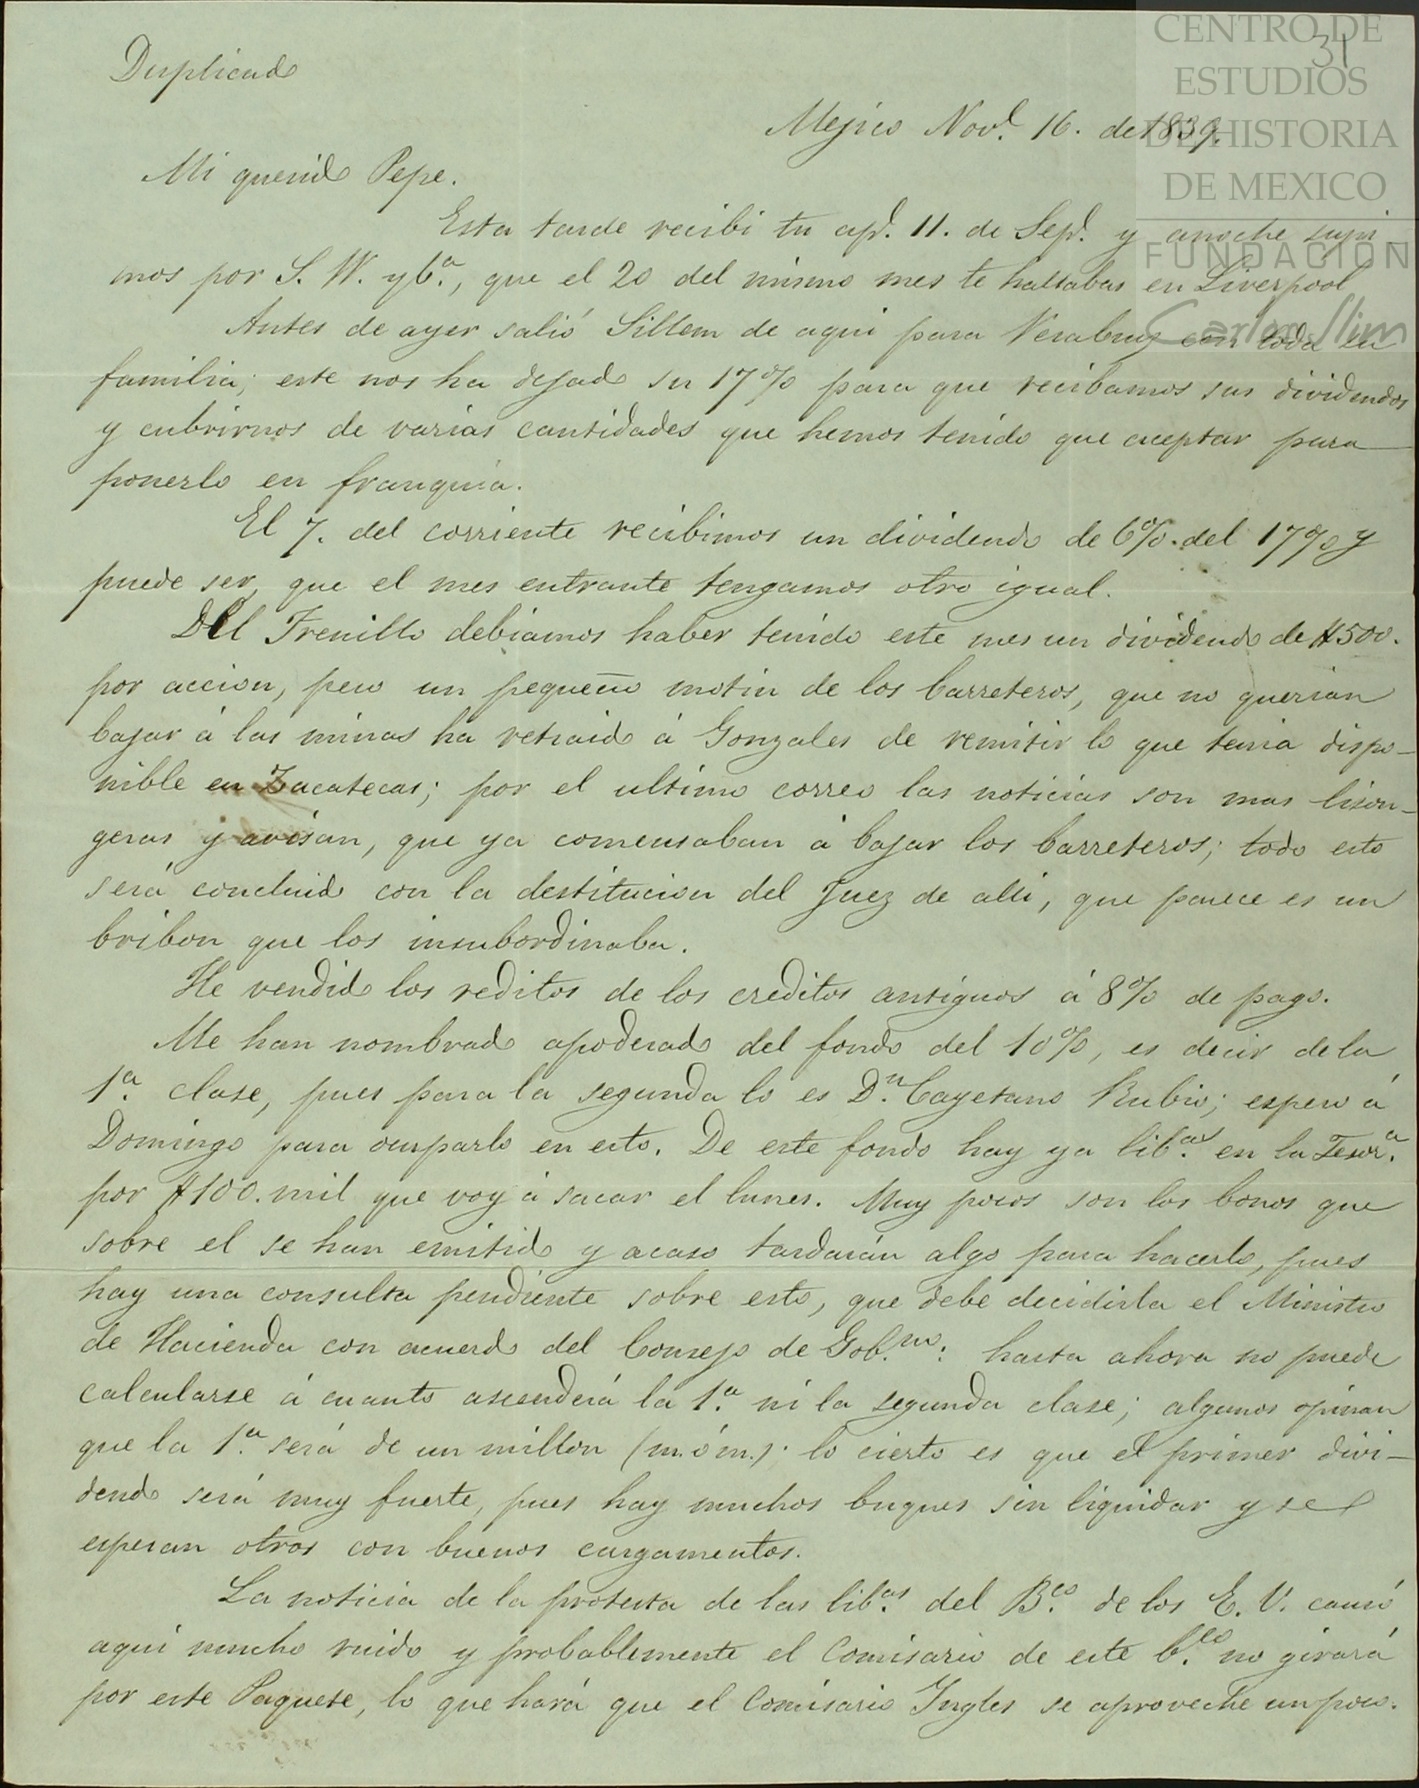 CENTRO DE
ESTUDIOS
DE HISTORIA
DE MEXICO
FUNDACIÓN
Carlos Slim
31
Duplicado
Mejico Nov.e 16. de 1839.
Mi querido Pepe.
Esta tarde recibi tu ap.da 11. de Sep.e y anoche supi
mos por S. W. y C.a, que el 20 del mismo mes te hallabas en Liverpool
Antes de ayer salió Sillem de aqui para VeraCruz con toda su
familia; este nos ha dejado su 17% para que recibamos sus dividendos
y cubrirnos de varias cantidades que hemos tenido que aceptar para
ponerlo en franquia.
El 7. del corriente recibimos un dividendo de 6%. del 17% y
puede ser, que el mes entrante tengamos otro igual.
Del Fresnillo debiamos haber tenido este mes un dividendo de $500.
por accion, pero un pequeño motin de los barreteros, que no querian
bajar á las minas ha retraido á Gonzales de remitir lo que tenia dispo-
nible en Zacatecas; por el ultimo correo las noticias son mas lison-
geras y avisan, que ya comensaban á bajar los barreteros; todo esto
será concluido con la destitucion del Juez de alli, que parece es un
bribon que los insubordinaba.
He vendido los reditos de los creditos antiguos á 8% de pago.
Me han nombrado apoderado del fondo del 10%, es decir de la
1.a clase, pues para la segunda lo es D.n Cayetano Rubio; espero á
Domingo para ocuparlo en esto. De este fondo hay ya lib.as en la Tesor.a
por $100. mil que voy á sacar el lunes. Muy pocos son los bonos que
sobre el se han emitido y acaso tardarán algo para hacerlo, pues
hay una consulta pendiente sobre esto, que debe decidirla el Ministro
de Hacienda con acuerdo del Consejo de Gob.no: hasta ahora no puede
calcularse á cuanto ascenderá la 1.a ni la segunda clase; algunos opinan
que la 1.a será de un millon (m. ó m.); lo cierto es que el primer divi-
dendo será muy fuerte, pues hay muchos buques sin liquidar y se
esperan otros con buenos cargamentos.
La noticia de la protesta de las lib.as del B.co de los E. U. causó
aqui mucho ruido y probablemente el Comisario de este b.co no girará
por este Paquete, lo que hará que el Comisario Yngles se aproveche un poco.